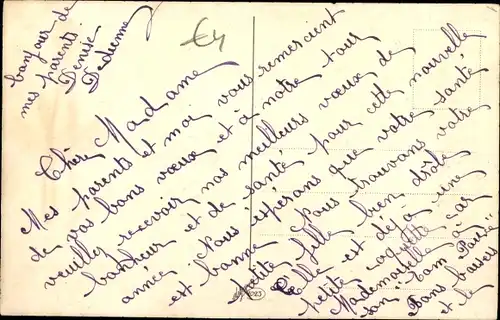 Chèr Madame
Mes parents et moi vous remercient
de vos bons vœux et à notre tour
veuillez recevoir nos meilleurs vœux de
bonheur et de santé pour cette nouvelle
année. Nous espérons que votre santé
est bonne Nous trouvons votre
petite fille bien drôle
Elle est déjà une
petite coquette
Mademoiselle à car
son "Tom Pouse"
Bons baisers
et le
bonjour de
mes parents.
Denise
Dedienne